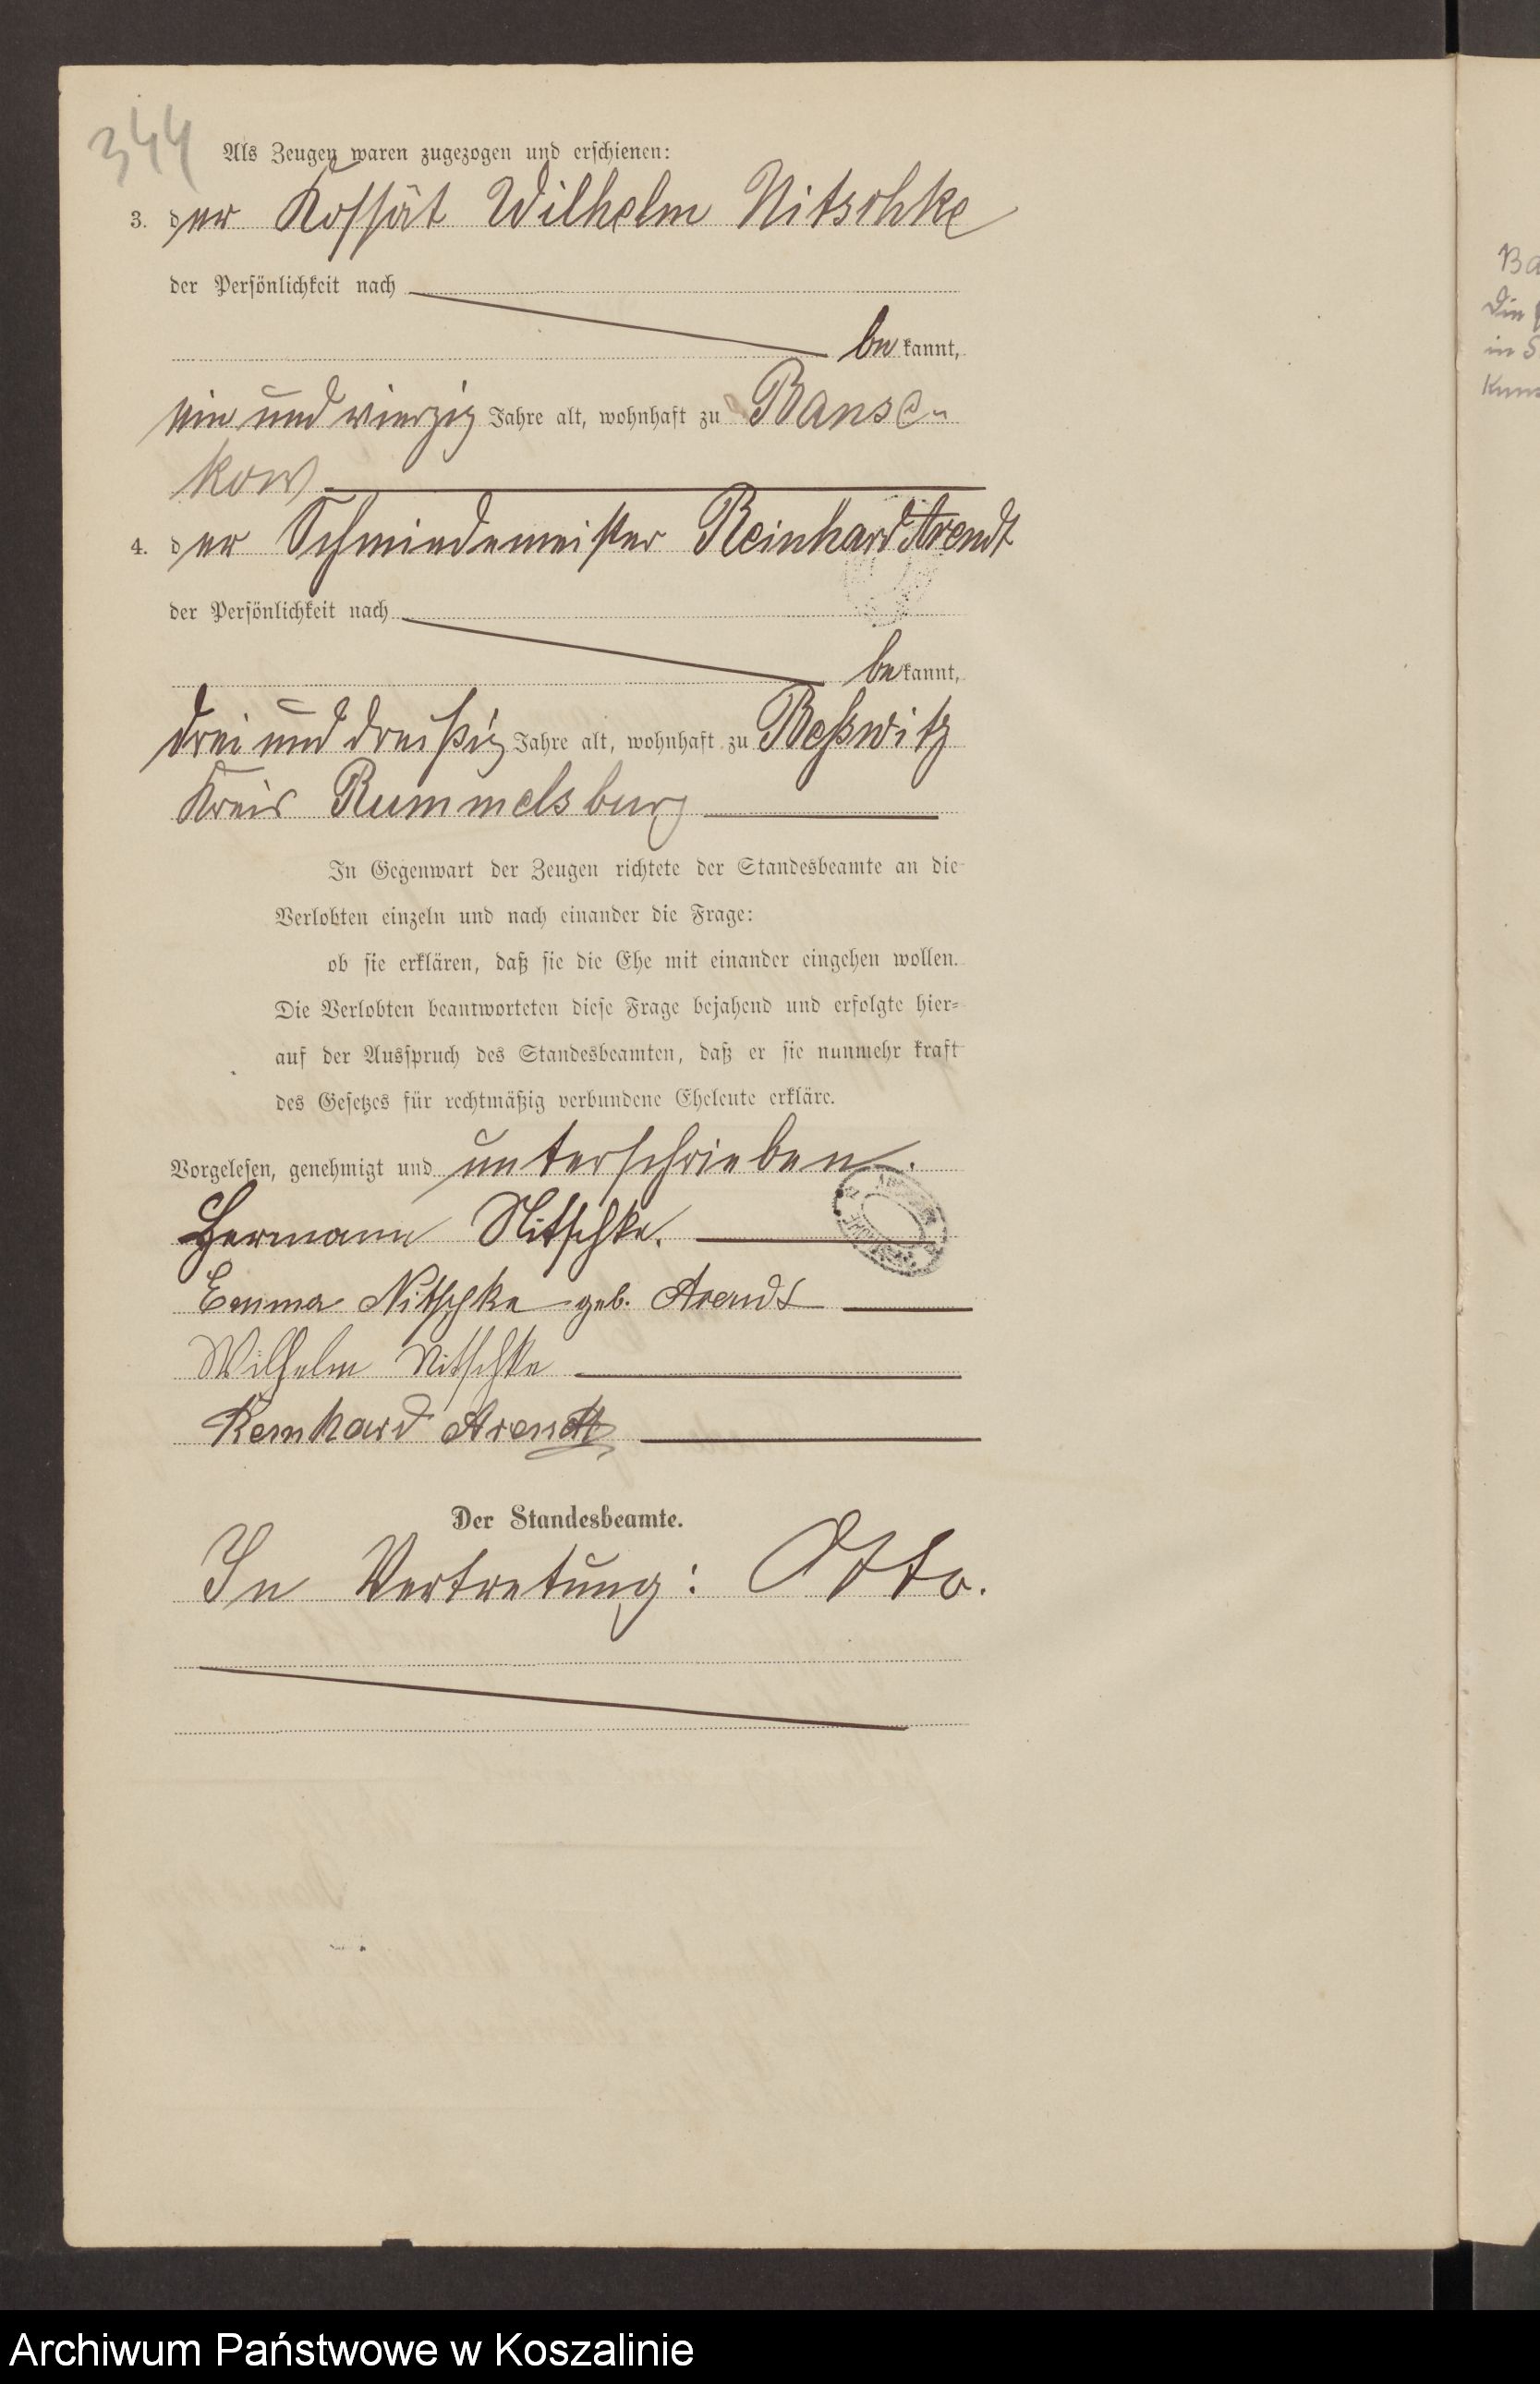 344
Als Zeugen waren zugezogen und erschienen:
3. der Kossät Wilhelm Nitschke
der Persönlichkeit nach
bekannt,
ein und vierzig Jahre alt, wohnhaft zu Banse-
kow
4. der Schmiedemeister Reinhard Arendt
der Persönlichkeit nach
bekannt,
drei und dreißig Jahre alt, wohnhaft zu Beßwitz
Kreis Rummelsburg
In Gegenwart der Zeugen richtete der Standesbeamte an die
Verlobten einzeln und nach einander die Frage:
ob sie erklären, daß sie die Ehe mit einander eingehen wollen.
Die Verlobten beantworteten diese Frage bejahend und erfolgte hier=
auf der Ausspruch des Standesbeamten, daß er sie nunmehr kraft
des Gesetzes für rechtmäßig verbundene Eheleute erkläre.
Vorgelesen, genehmigt und unterschrieben.
Hermann Nitschke.
Emma Nitschke geb. Arendt
Wilhelm Nitschke
Reinhard Arendt
Der Standesbeamte.
In Vertretung: Otto.
Ba
Die
in S
Kuns
Archiwum Państwowe w Koszalinie